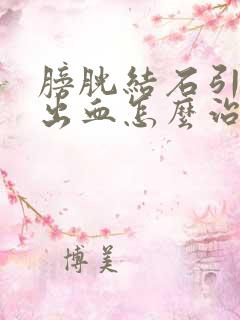 膀胱結石引
出血怎麼治
博美